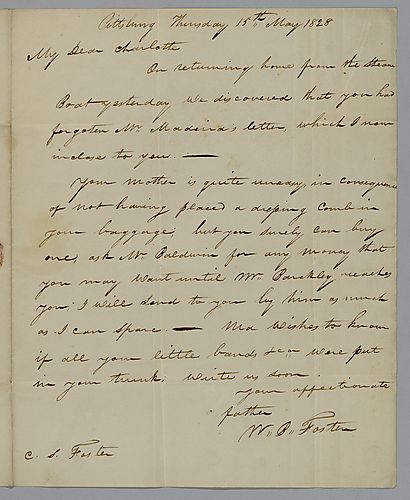 Pittsburg Thursday 15th May 1828
My Dear Charlotte
On returning home from the Steam
Boat yesterday we discovered that you had
forgoten Mr. Madeira's letter, which I now
inclose to you. —
Your Mother is quite uneasy, in consequence
of not having placed a dressing Comb in
your baggage; but you surely can buy
one; ask Mr Baldwin for any money that
you may want until Mr. Barkley reaches
you: I will send to you by him as much
as I can spare. — Ma wishes to know
if all your little bands &ca were put
in your trunk: write us soon.
Your affectionate
father
Wm. B. Foster
C. S. Foster